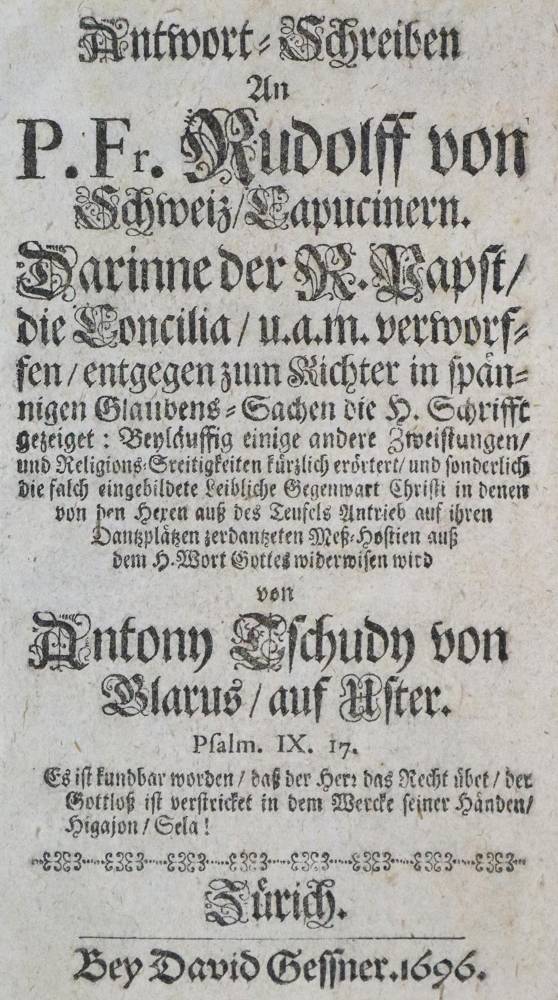 Antwort-Schreiben
An
P. Fr. Rudolff von
Schweiz/Capucinern.
Darinne der R. Papst/
die Concilia / u.a.m. verworf-
fen / entgegen zum Richter in spän-
nigen Glaubens-Sachen die H. Schrifft
gezeiget: Beyläuffig einige andere Zweistungen/
und Religions-Sreitigkeiten kürzlich erörtert/ und sonderlich
die falch eingebildete Leibliche Gegenwart Christi in denen
von den Hexen auß des Teufels Antrieb auf ihren
Dantzplätzen zerdantzeten Meß-Hostien auß
dem H. Wort Gottes widerwisen wird
von
Antony Tschudy von
Glarus / auf Uster.
Psalm. IX. 17.
Es ist kundbar worden / daß der Herr das Recht übet / der
Gottloß ist verstricket in dem Wercke seiner Händen/
Higajon / Sela!
Zürich.
Bey David Gessner. 1696.